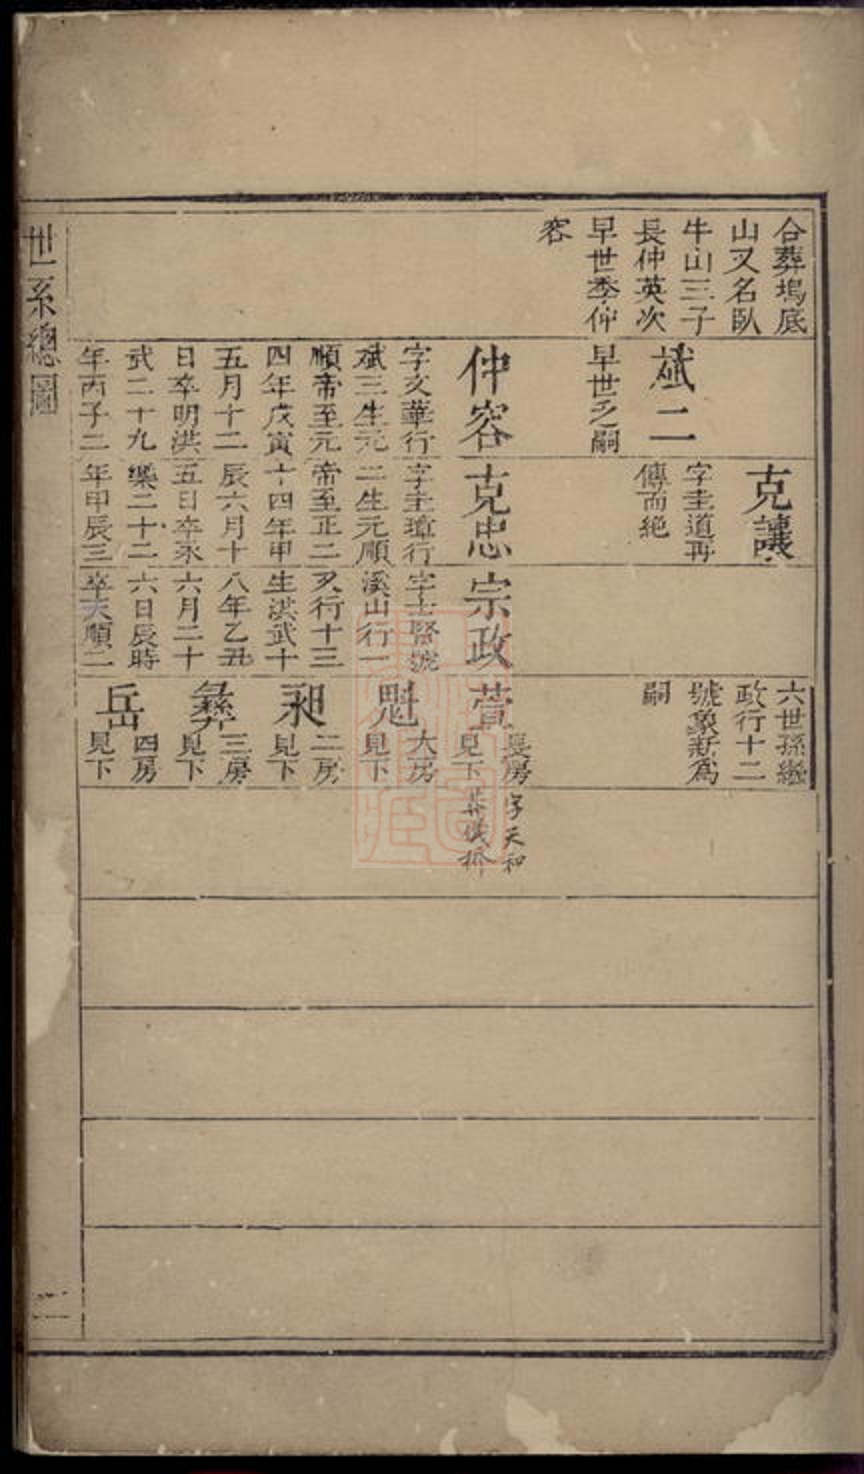 合葬塢底
山又名臥
牛山三子
長仲英次
早世季仲
容
斌二
早世乏嗣
仲容
字文華行
斌三生元
順帝至元
四年戊寅
五月十二
日卒明洪
武二十九
年丙子二
克讓
字圭道再
傳而絕
克忠
字圭璋行
二生元順
帝至正二
十四年甲
辰六月十
五日卒永
樂二十二
年甲辰三
宗政
字士賢號
溪山行一
又行十三
生洪武十
八年乙丑
六月二十
六日辰時
卒天順二
六世孫繼
政行十二
號象新爲
嗣
萱
長房
見下
字天和
葬儀橋
魁
大房
見下
昶
二房
見下
彝
三房
見下
岳
四房
見下
世系總圖
二